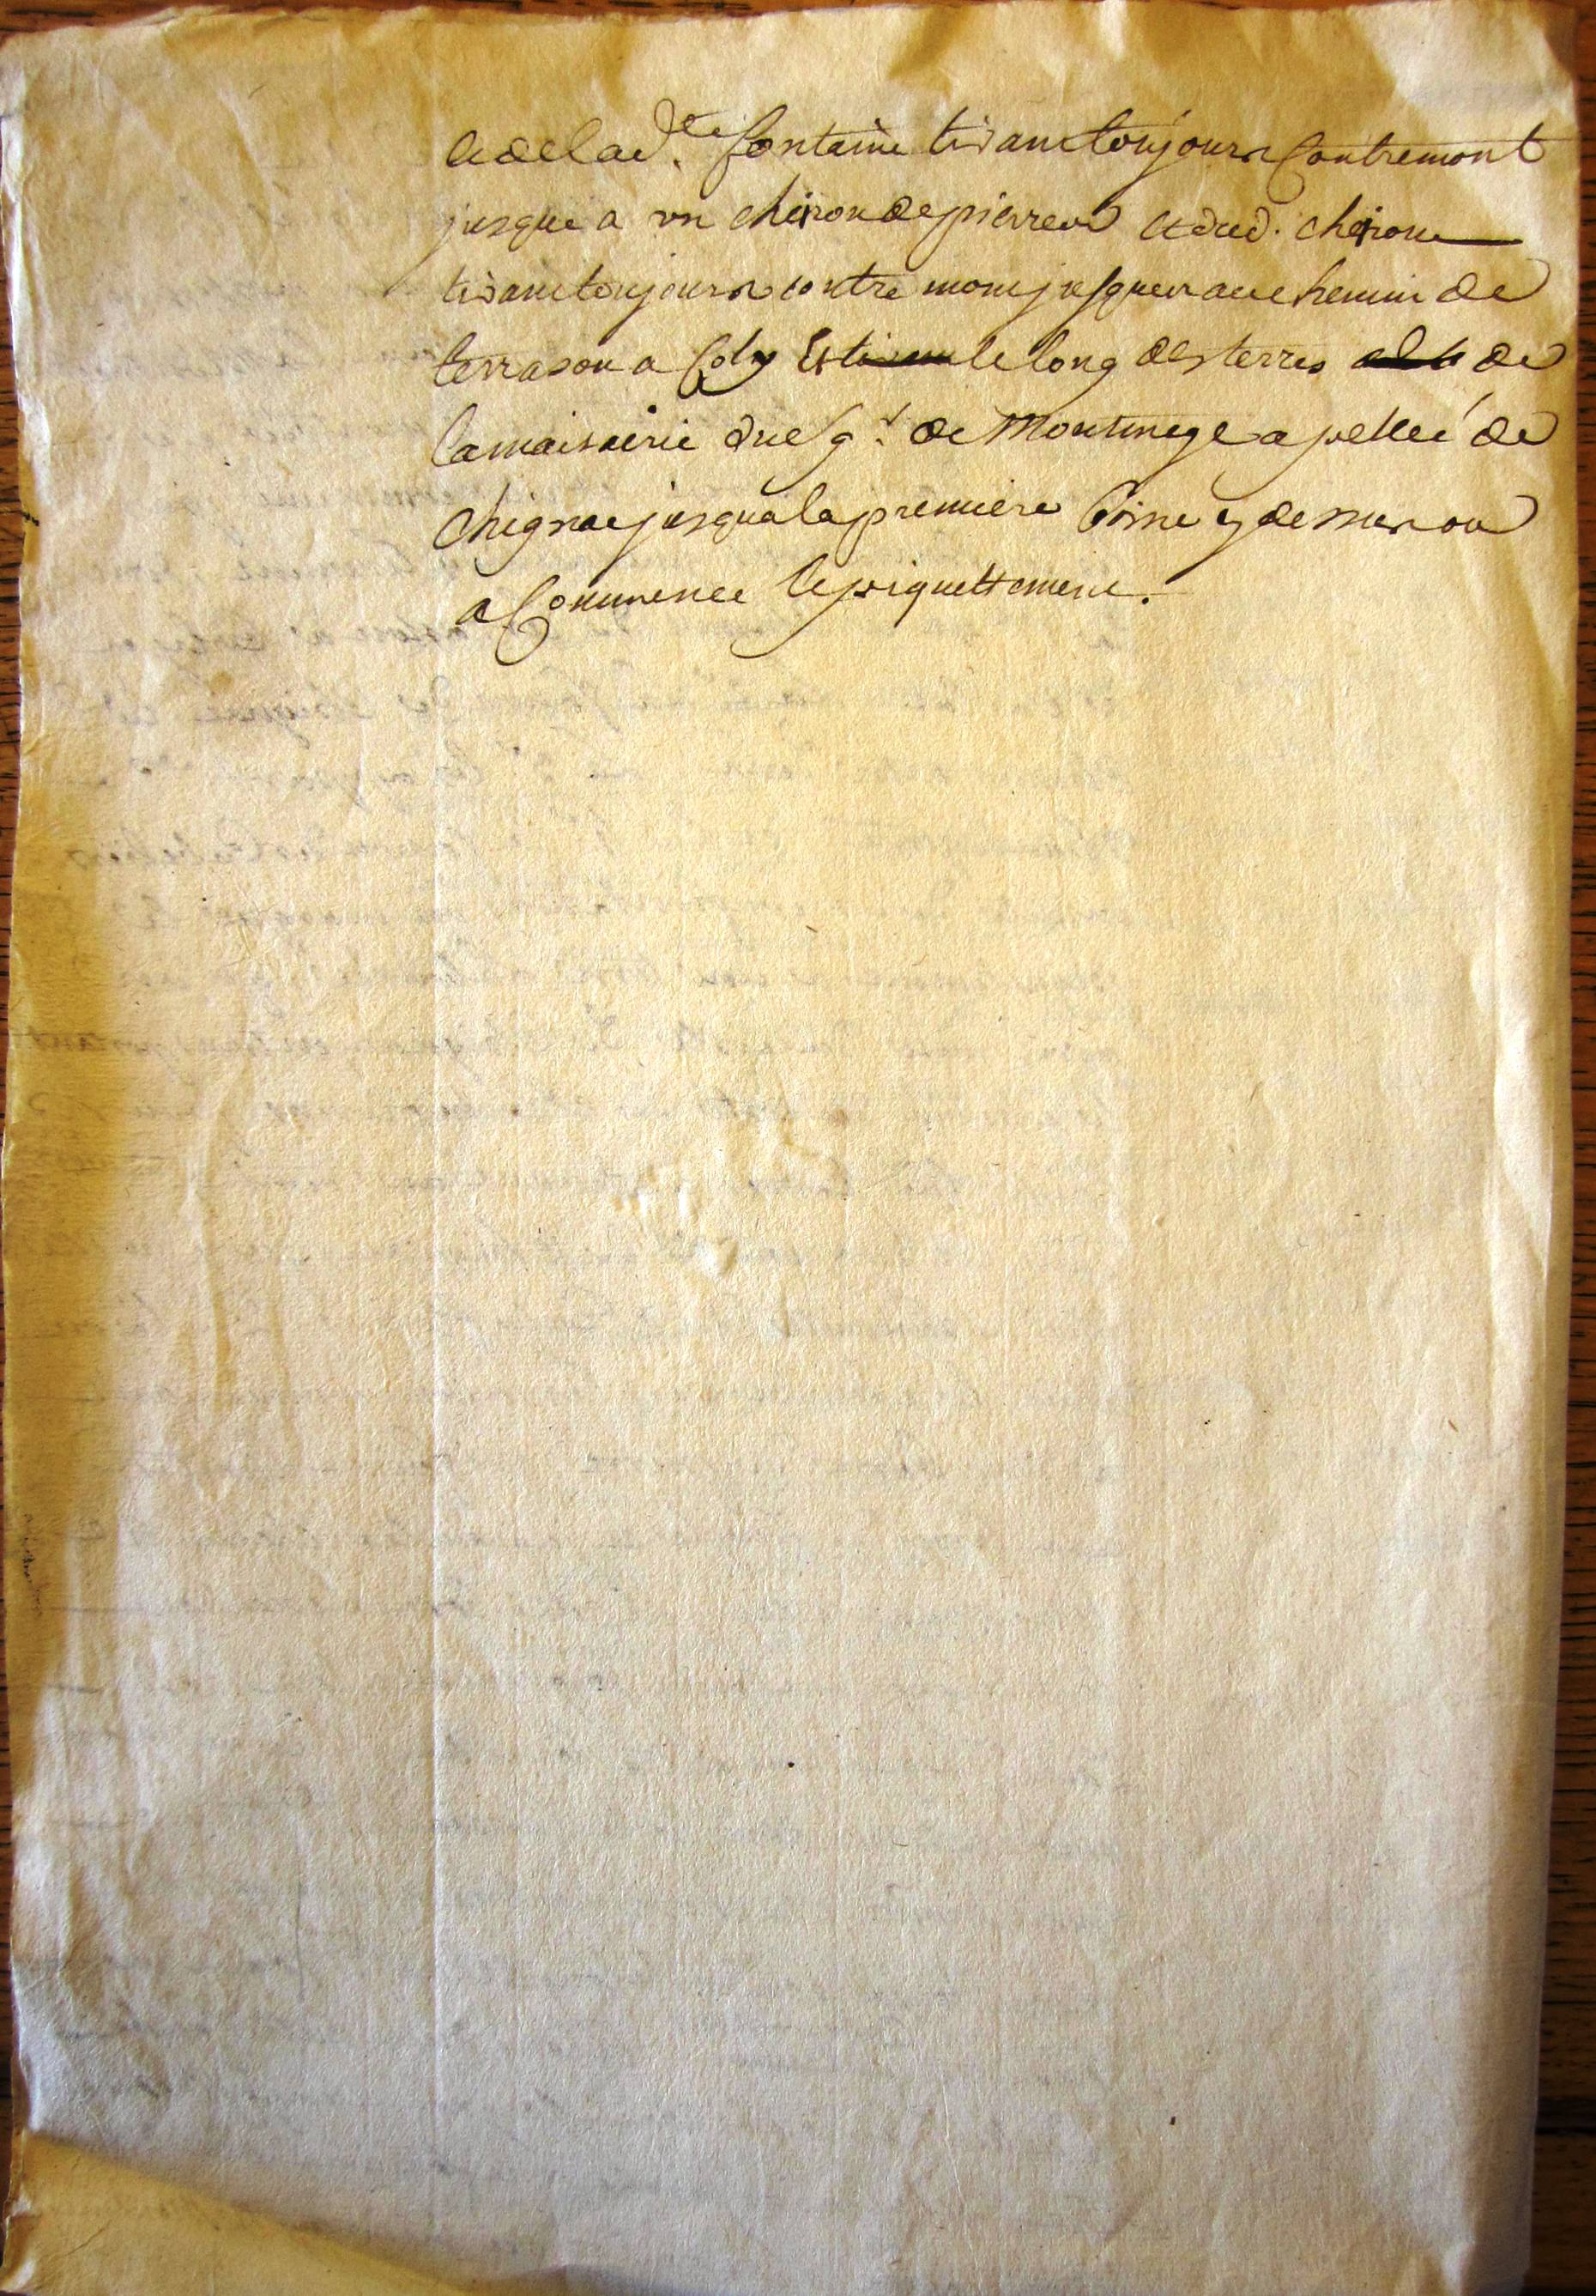 et de lad.te fontaine tirant toujours contremont
jusque a un cheiron de pierres et dud. cheiron
tirant toujours contre mont jusques au chemin de
terrason a Coly et le long des terres de
la maiterie du sgr de Montmege apellée de
chignac jusqua la premiere borne y dessus ou
a commence le piquettement.